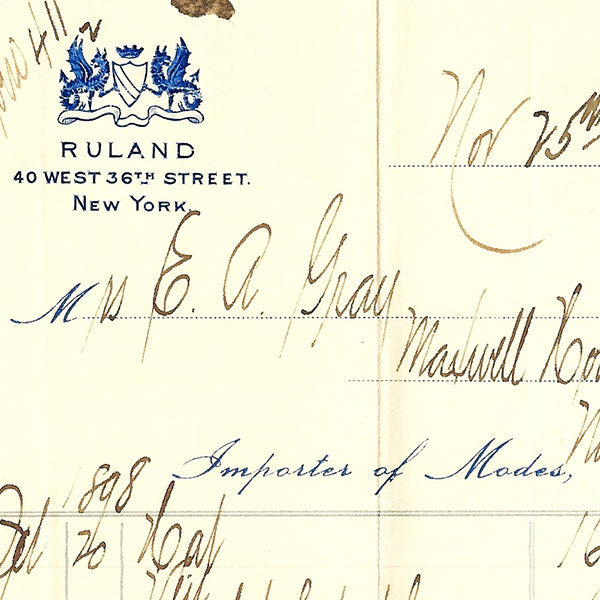 Nov 25
RULAND
40 WEST 36TH STREET.
NEW YORK.
Mrs E. A. Gray
Maxwell
Importer of Modes,
1898
20 Hat